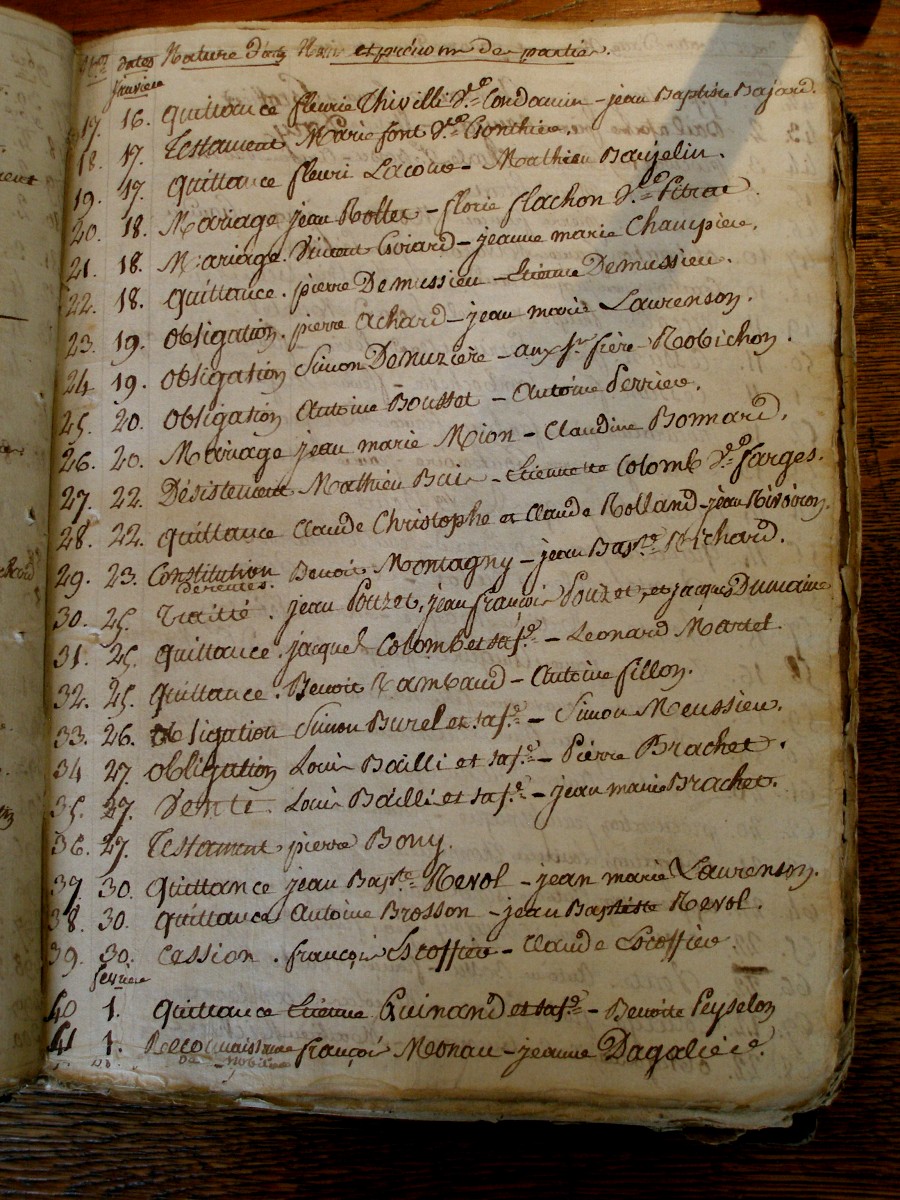 N.os dates Nature d'acte Noms et prénom de parties.
janvier
17. 16. quittance fleurie Thivilli v.e Condamin - jean Baptiste Bajard.
18. 17. Testament Marie font v.e Gonthier.
19. 17. quittance fleuri Lacour - Mathieu Baujelin.
20. 18. Mariage jean Rollet - florie flachon v.e Pitrat.
21. 18. Mariage. Vincent Girard - jeanne marie Champier.
22. 18. quittance. pierre Demussieu - Etienne Demussieu.
23. 19. obligation. pierre Achard - jean marie Laurenson.
24 19. obligation Simon Denuzière - aux s.rs frère Robichon.
25. 20. obligation Antoine Bousset - Antoine Perrier.
26. 20. Mariage jean marie Mion - Claudine Bonnard.
27. 22. Désistement Mathieu - Etiennette Colomb v.e farges.
28. 22. quittance Claude Christophe et Claude Rolland - jean Rivoiron.
29. 23. Constitution Benoit Montagny - jean Bap.te Richard.
de rentes.
30. 25. Traitté. jean Pouzet, jean françois Pouzet, et jacques Dumaine
31. 25. quittance. jacques Colomb et sa f.e - Leonard Martel.
32. 25. quittance. Benoit Rambaud - Antoine fillon.
33. 26. obligation Simon Burel et sa f.e - Simon Meussieu.
34 27. obligation Louis Bailli et sa f.e - Pierre Brachet.
35. 27. Vente Louis Bailli et sa f.e - jean marie Brachet.
36. 27. Testament pierre Bony.
37. 30. quittance jean Bap.te Revol - jean marie Laurenson.
38. 30. quittance Antoine Brosson - jean Baptiste Revol.
39. 30. Cession. françois Escoffier - Claude Escoffier.
fevrier
40 1. quittance Etienne Guinand et sa f.e - Benoite Peyselon
41 1. Reconnaissance françois Monau - jeanne Dagalier.
de mobilier